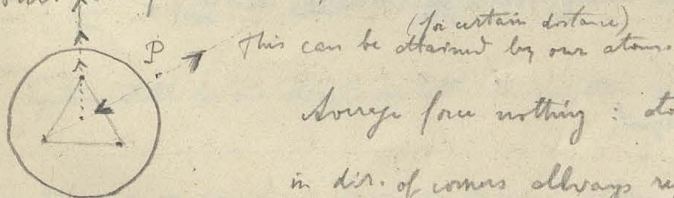 (for certain distance)
P This can be attained by our atoms
Average force nothing : ato
in dir. of corners allways re